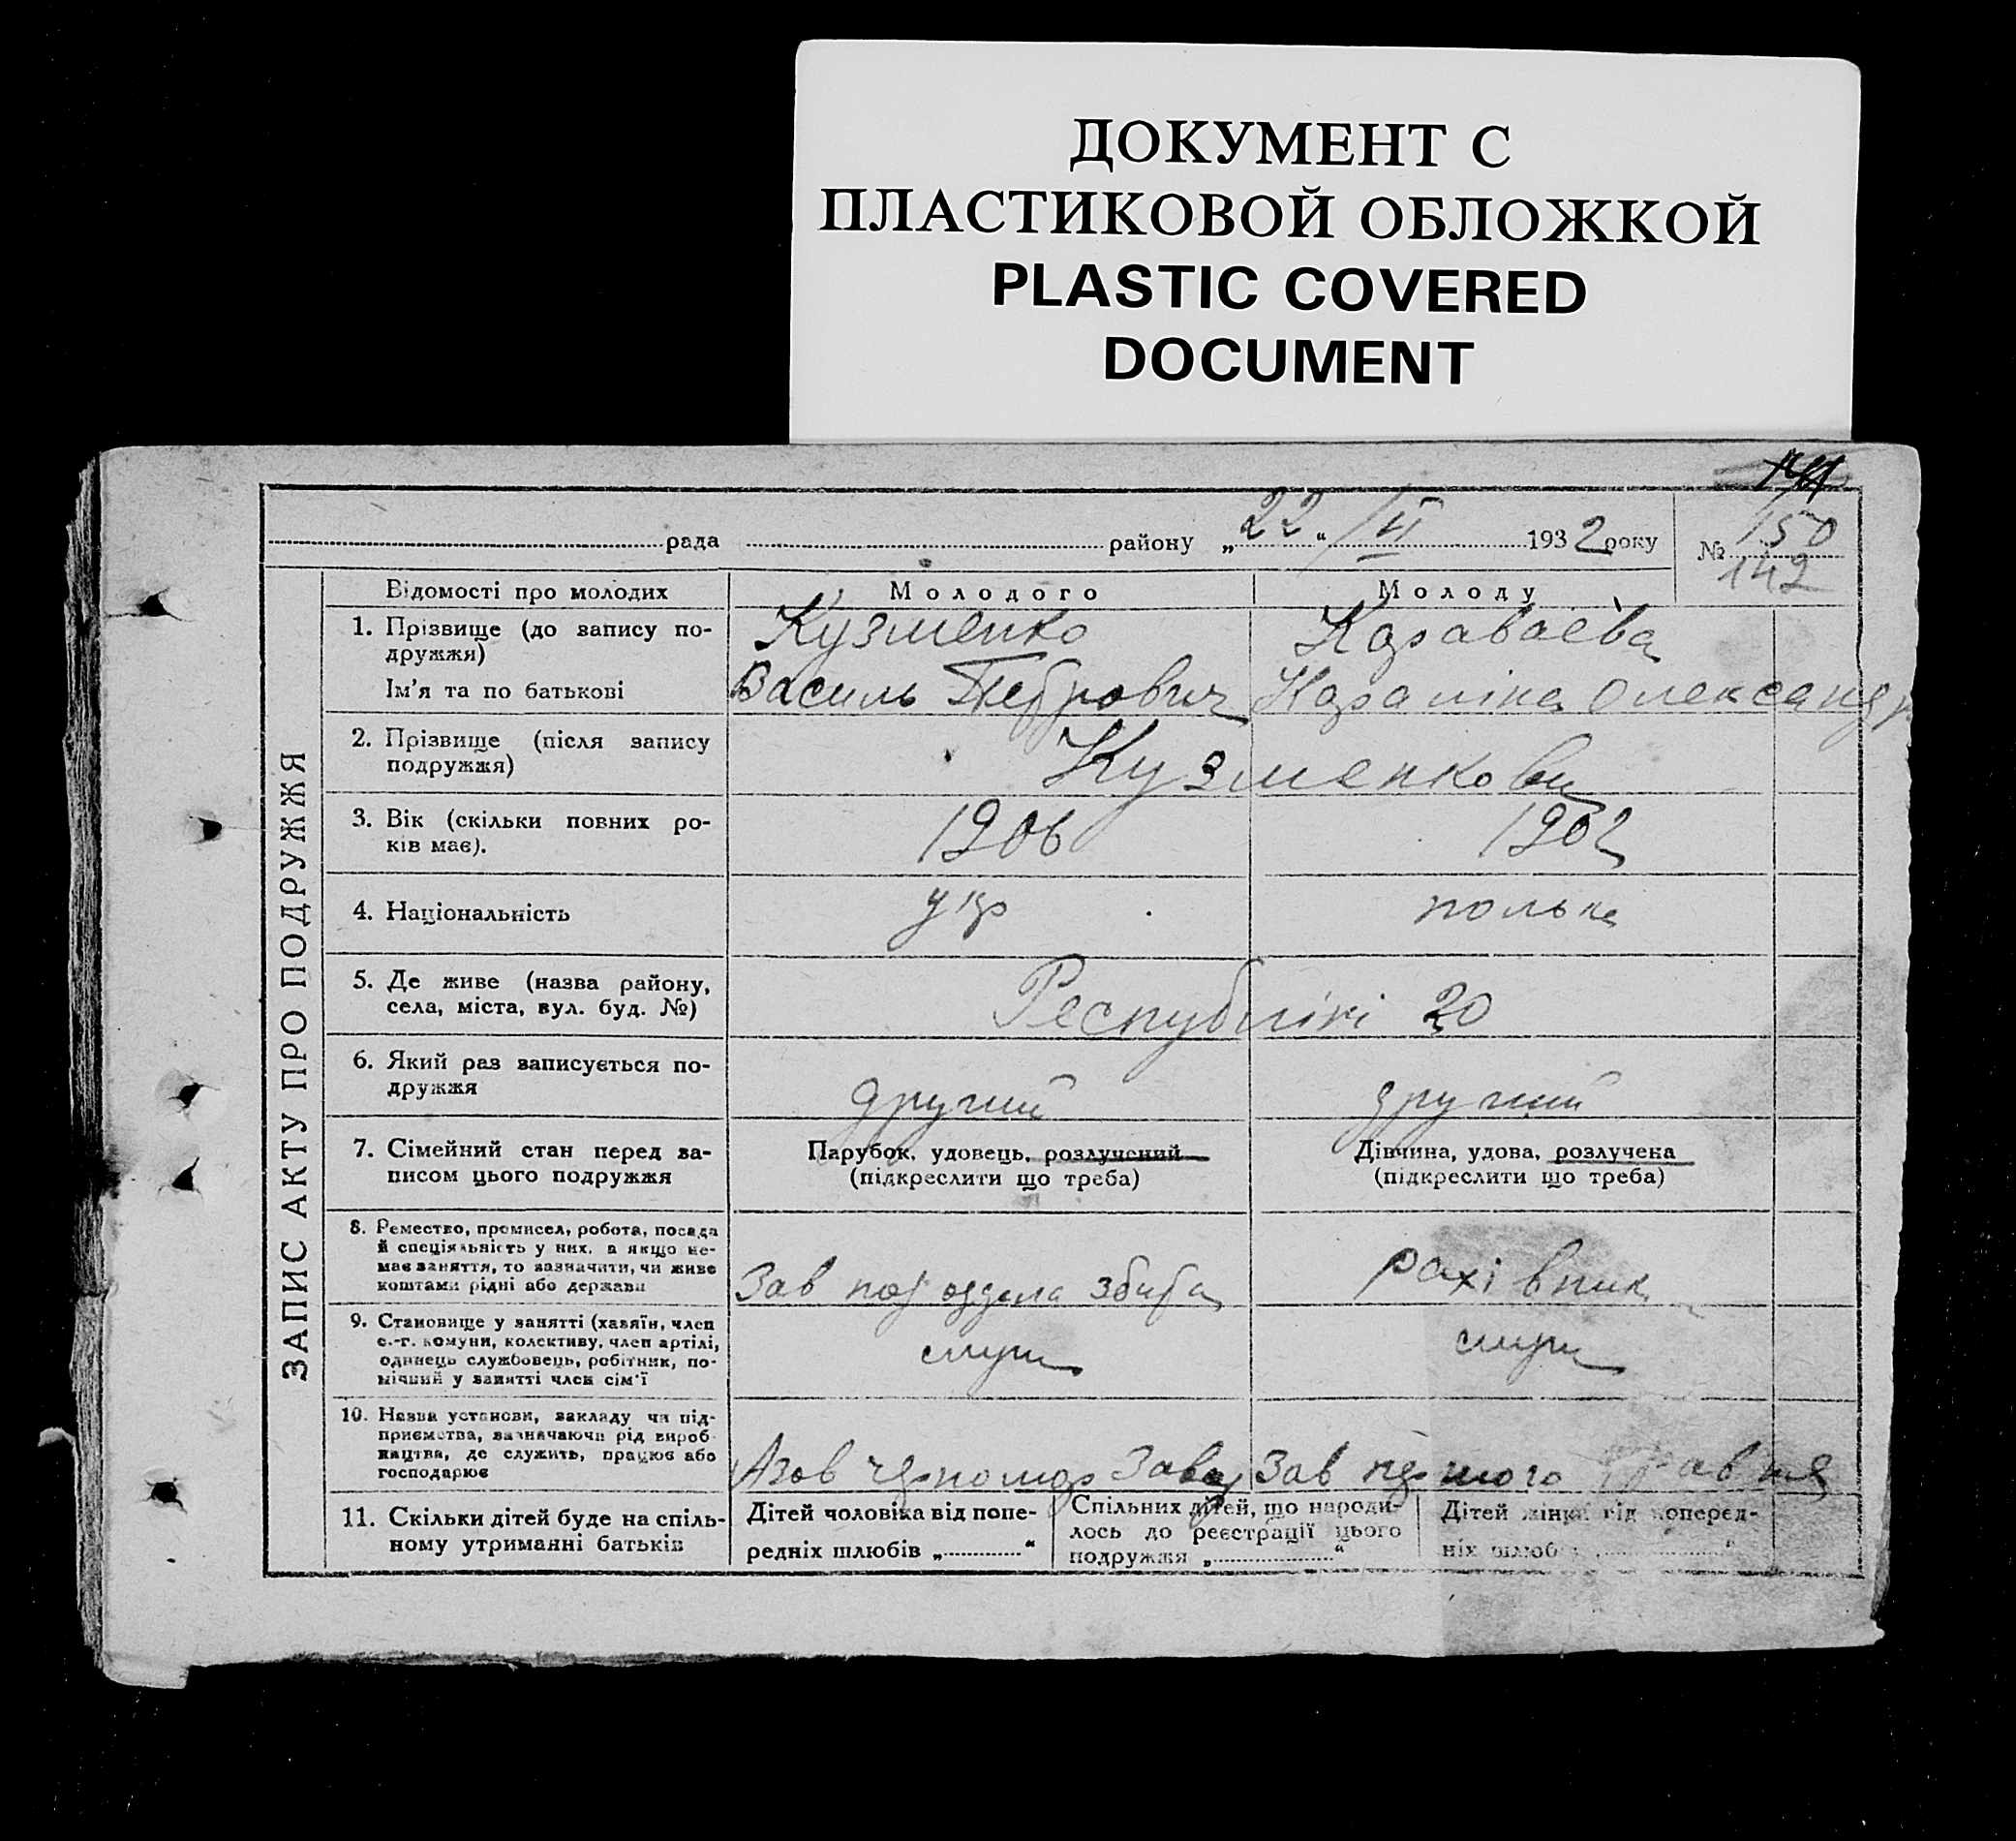 ДОКУМЕНТ С
ПЛАСТИКОВОЙ ОБЛОЖКОЙ
PLASTIC COVERED
DOCUMENT
рада района „22“ 1932 року № 150
142
ЗАПИС АКТУ ПРО ПОДРУЖЖЯ
Відомості про молодих Молодого Молоду
1. Прізвище (до запису по-
дружжя) Кузменко Караваєва
Ім'я та по батькові Василь Петрович Олександр
2. Прізвище (після запису
подружжя) Кузменкови
3. Вік (скільки повних ро-
ків має). 1906 1902
4. Національність укр полька
5. Де живе (назва району,
села, міста, вул. буд. №) Республіки 20
6. Який раз записується по-
дружжя другий другий
7. Сімейний стан перед за-
писом цього подружжя
Парубок, удовець, розлучений
(підкреслити що треба)
Дівчина, удова, розлучена
(підкреслити що треба)
8. Ремество, промисел, робота, посада
й спеціяльність у них, а якщо не-
має заняття, то зазначити, чи живе
коштами рідні або держави
Зав збита рахівник
9. Становище у занятті (хазяїн, член
с.-г. комуни, колективу, член артілі,
одинець службовець, робітник, по-
мічний у занятті член сім'ї
служ служ
10. Назва установи, закладу чи під-
приємства, зазначаючи рід вироб-
ництва, де служить, працює або
господарює
Азов черномор Зав першого Травня
11. Скільки дітей буде на спіль-
ному утриманні батьків
Дітей чоловіка від попе-
редніх шлюбів „ “
Спільних дітей, що народи-
лось до реєстрації цього
подружжя „ “
Дітей жінки від поперед-
ніх шлюбів „ “